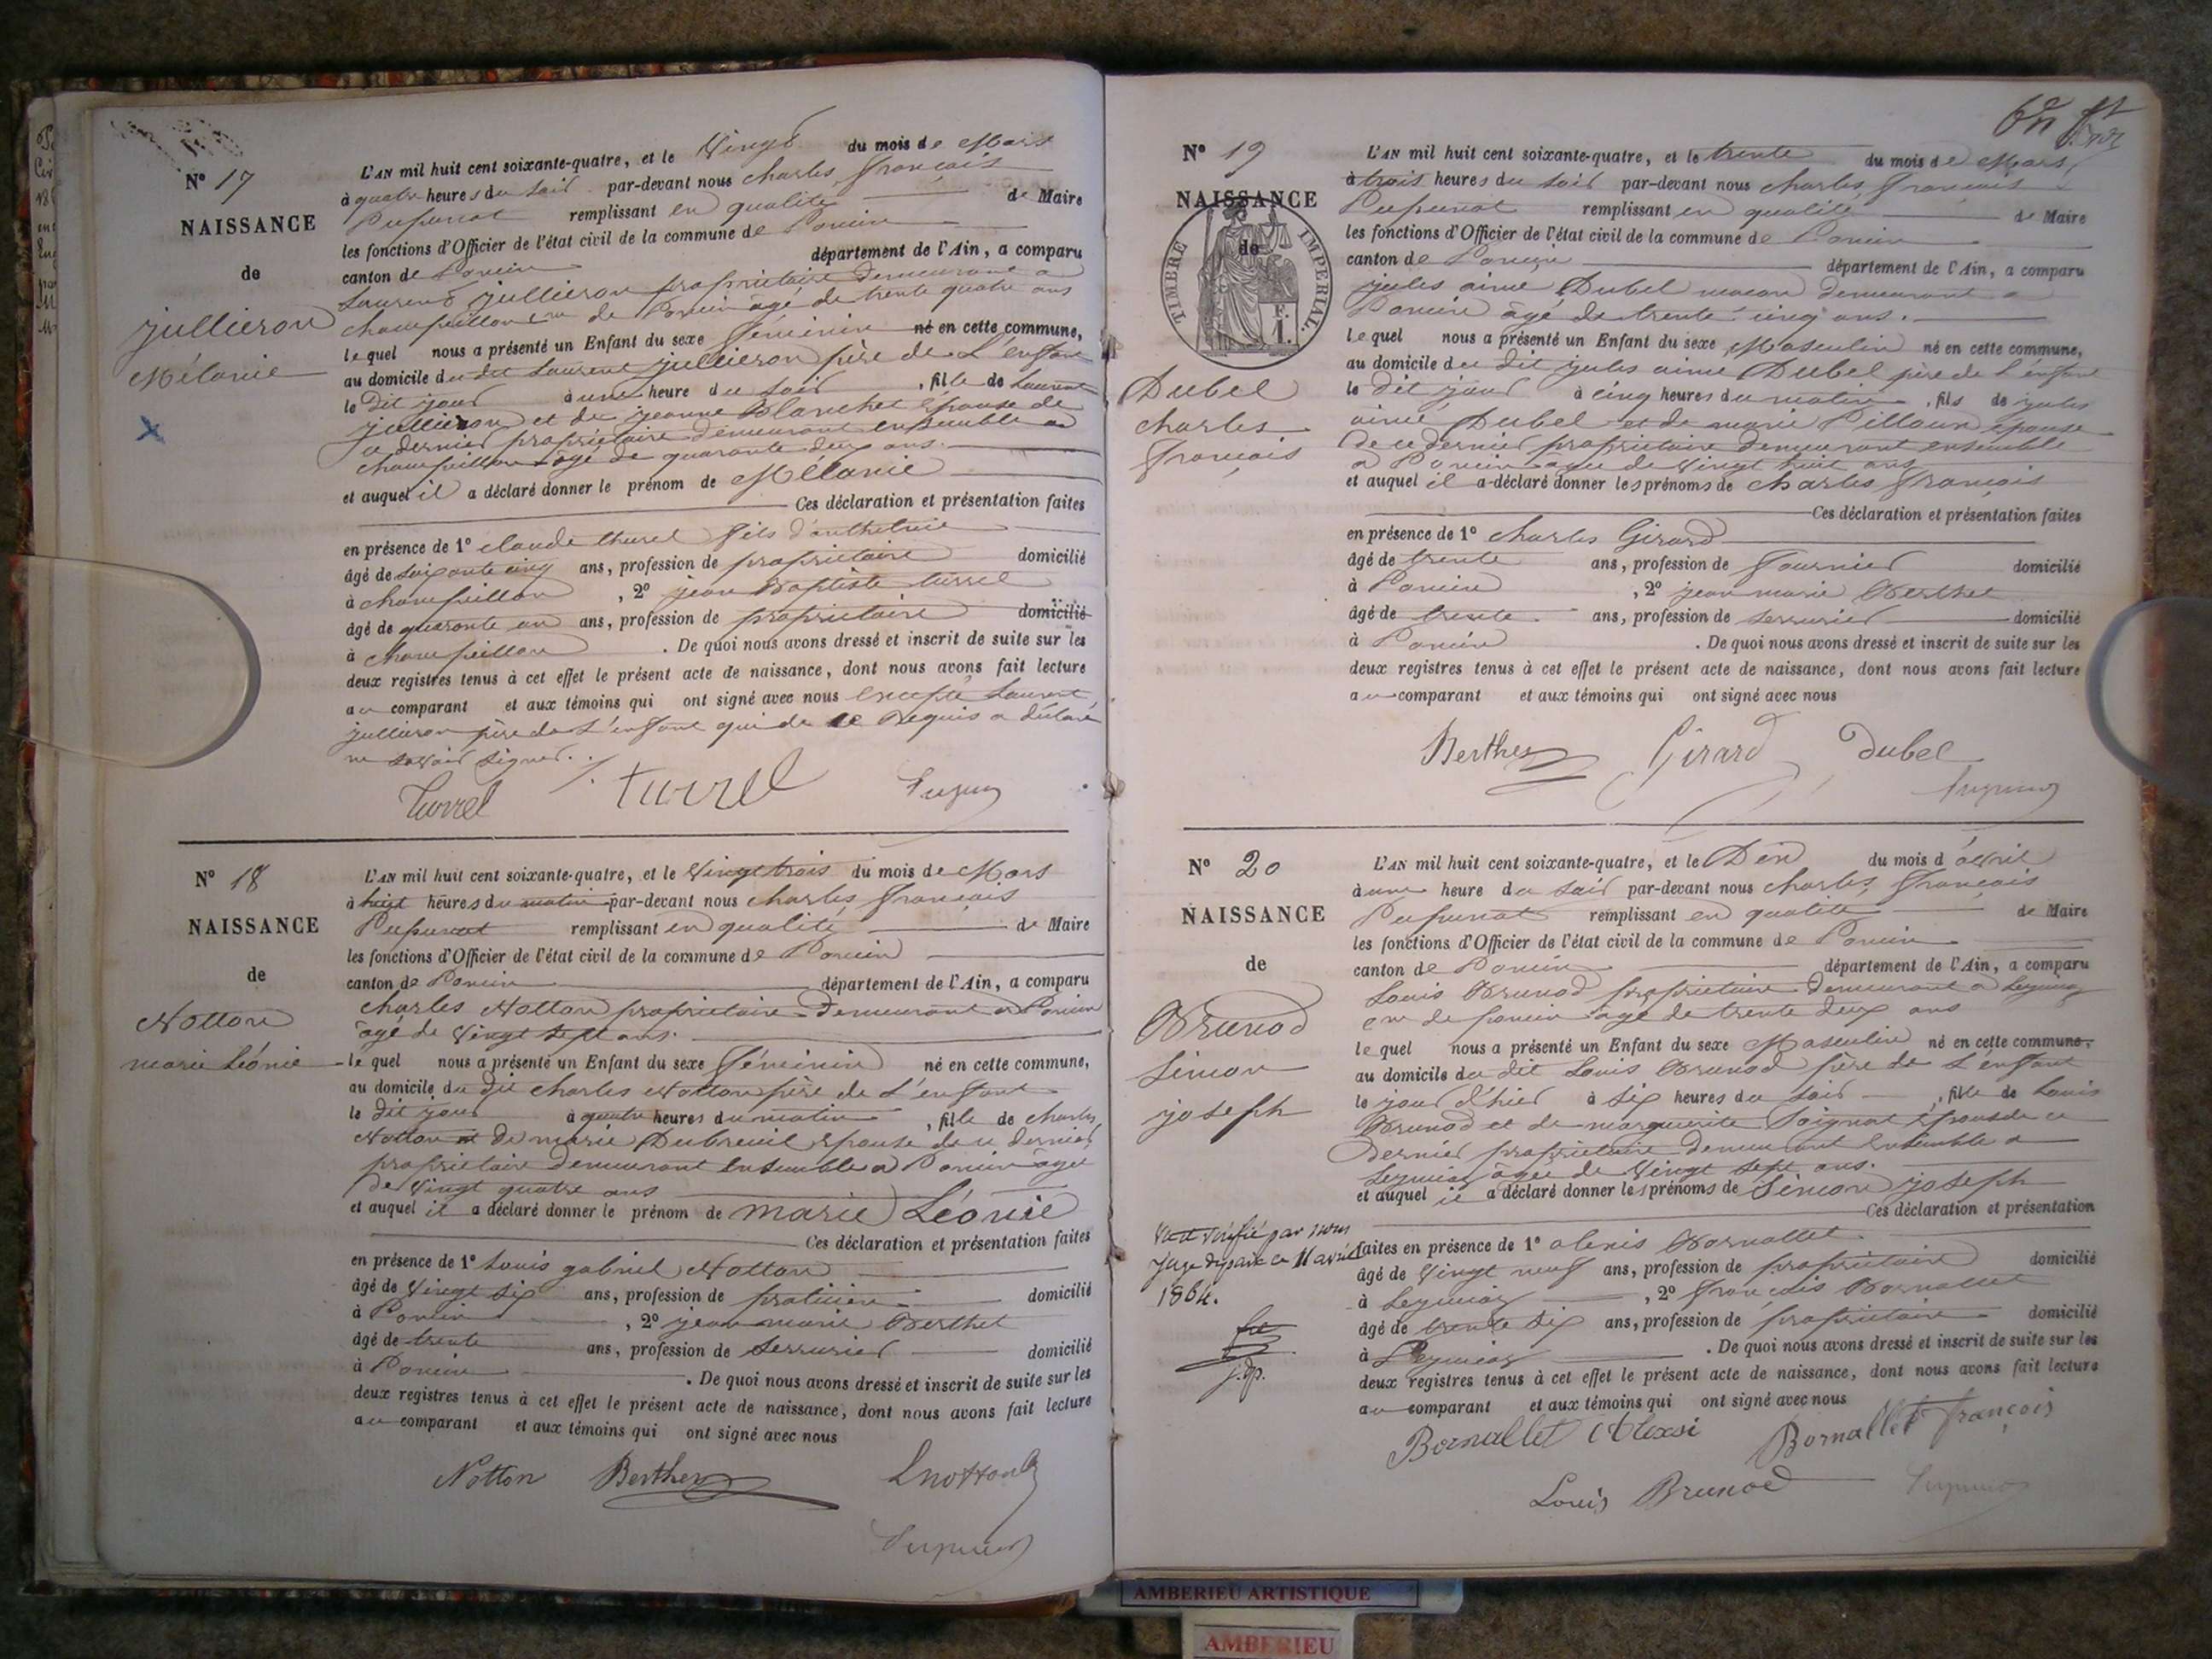 N° 17
NAISSANCE
de
jullieron
Mélanie
L'AN mil huit cent soixante-quatre, et le Vingt du mois de Mars
à quatre heures du soir par-devant nous charles françois
Pupunat remplissant en qualité de Maire
les fonctions d'Officier de l'état civil de la commune de Poncin
canton de Poncin département de l'Ain, a comparu
Laurent jullieron propriétaire demeurant a
champeillon cne de Poncin âgé de trente quatre ans
lequel nous a présenté un Enfant du sexe féminin né en cette commune,
au domicile du dit Laurent jullieron père de L'enfant
le dit jour à une heure du soir , fille de Laurent
jullieron et de jeanne Blanchet épouse de
ce dernier propriétaire demeurant ensemble a
champeillon âgé de quarante deux ans.
et auquel il a déclaré donner le prénom de Mélanie
Ces déclaration et présentation faites
en présence de 1° claude thurel fils d'anthelme
âgé de soixante cinq ans, profession de propriétaire domicilié
à champeillon , 2° jean Baptiste turrel
âgé de quarante un ans, profession de propriétaire domicilié
à champeillon . De quoi nous avons dressé et inscrit de suite sur les
deux registres tenus à cet effet le présent acte de naissance, dont nous avons fait lecture
au comparant et aux témoins qui ont signé avec nous excepté Laurent
jullieron père de L'enfant qui de ce Requis a déclaré
ne savoir signer.
Turrel turrel
N° 18
NAISSANCE
de
Notton
marie Léonie
L'AN mil huit cent soixante-quatre, et le Vingt trois du mois de Mars
à huit heures du matin par-devant nous charles françois
Pupunat remplissant en qualité de Maire
les fonctions d'Officier de l'état civil de la commune de Poncin
canton de Poncin département de l'Ain, a comparu
charles Notton propriétaire demeurant a Poncin
âgé de Vingt sept ans.
lequel nous a présenté un Enfant du sexe féminin né en cette commune,
au domicile du dit charles Notton père de L'enfant
le dit jour à quatre heures du matin , fille de charles
Notton et de marie Dubreuil épouse de ce dernier
propriétaire demeurant ensemble a Poncin âgée
de Vingt quatre ans
et auquel il a déclaré donner le prénom de marie Léonie
Ces déclaration et présentation faites
en présence de 1° Louis gabriel Notton
âgé de Vingt six ans, profession de praticien domicilié
à Poncin , 2° jean marie Berthet
âgé de trente ans, profession de serrurier domicilié
à Poncin . De quoi nous avons dressé et inscrit de suite sur les
deux registres tenus à cet effet le présent acte de naissance, dont nous avons fait lecture
au comparant et aux témoins qui ont signé avec nous
Notton Berthet Lnotton
N° 19
NAISSANCE
de
TIMBRE IMPERIAL.
F.
1.
Dubel
charles
françois
L'AN mil huit cent soixante-quatre, et le trente du mois de Mars
à trois heures du soir par-devant nous charles françois
Pupunat remplissant en qualité de Maire
les fonctions d'Officier de l'état civil de la commune de Poncin
canton de Poncin département de l'Ain, a comparu
jules aimé Dubel maçon demeurant a
Poncin âgé de trente cinq ans.
lequel nous a présenté un Enfant du sexe Masculin né en cette commune,
au domicile du dit jules aimé Dubel père de L'enfant
le dit jour à cinq heures du matin , fils de jules
aimé Dubel et de marie Pilloux épouse
de ce dernier propriétaire demeurant ensemble
a Poncin agée de Vingt huit ans
et auquel il a déclaré donner les prénoms de charles françois
Ces déclaration et présentation faites
en présence de 1° charles Girard
âgé de trente ans, profession de fournier domicilié
à Poncin , 2° jean marie Berthet
âgé de trente ans, profession de serrurier domicilié
à Poncin . De quoi nous avons dressé et inscrit de suite sur les
deux registres tenus à cet effet le présent acte de naissance, dont nous avons fait lecture
au comparant et aux témoins qui ont signé avec nous
Berthet Girard Dubel
N° 20
NAISSANCE
de
Brunod
Simon
joseph
L'AN mil huit cent soixante-quatre, et le Dix du mois d'avril
à une heure du soir par-devant nous charles françois
Pupunat remplissant en qualité de Maire
les fonctions d'Officier de l'état civil de la commune de Poncin
canton de Poncin département de l'Ain, a comparu
Louis Brunod propriétaire demeurant a Leymiat
cne de poncin âgé de trente deux ans
lequel nous a présenté un Enfant du sexe Masculin né en cette commune,
au domicile du dit Louis Brunod père de L'enfant
le jour d'hier à six heures du soir , fils de Louis
Brunod et de marguerite Soignat épouse de ce
dernier propriétaire demeurant ensemble a
Leymiat âgée de Vingt sept ans.
et auquel il a déclaré donner les prénoms de Simon joseph
Ces déclaration et présentation
faites en présence de 1° alexis Bornallet
âgé de Vingt neuf ans, profession de propriétaire domicilié
à Leymiat , 2° françois Bornallet
âgé de trente six ans, profession de propriétaire domicilié
à Leymiat . De quoi nous avons dressé et inscrit de suite sur les
deux registres tenus à cet effet le présent acte de naissance, dont nous avons fait lecture
au comparant et aux témoins qui ont signé avec nous
Bornallet Alexsi Bornallet françois
Louis Brunod
Vu et vérifié par nous
juge de paix ce 11 avril
1864.
j. dp.
AMBERIEU ARTISTIQUE
AMBERIEU